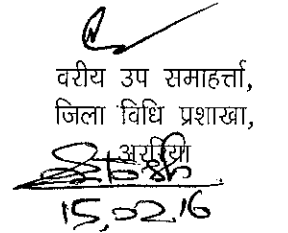 वरीय उप समाहर्त्ता,
जिला विधि प्रशाखा,
अररिया
15.02.16